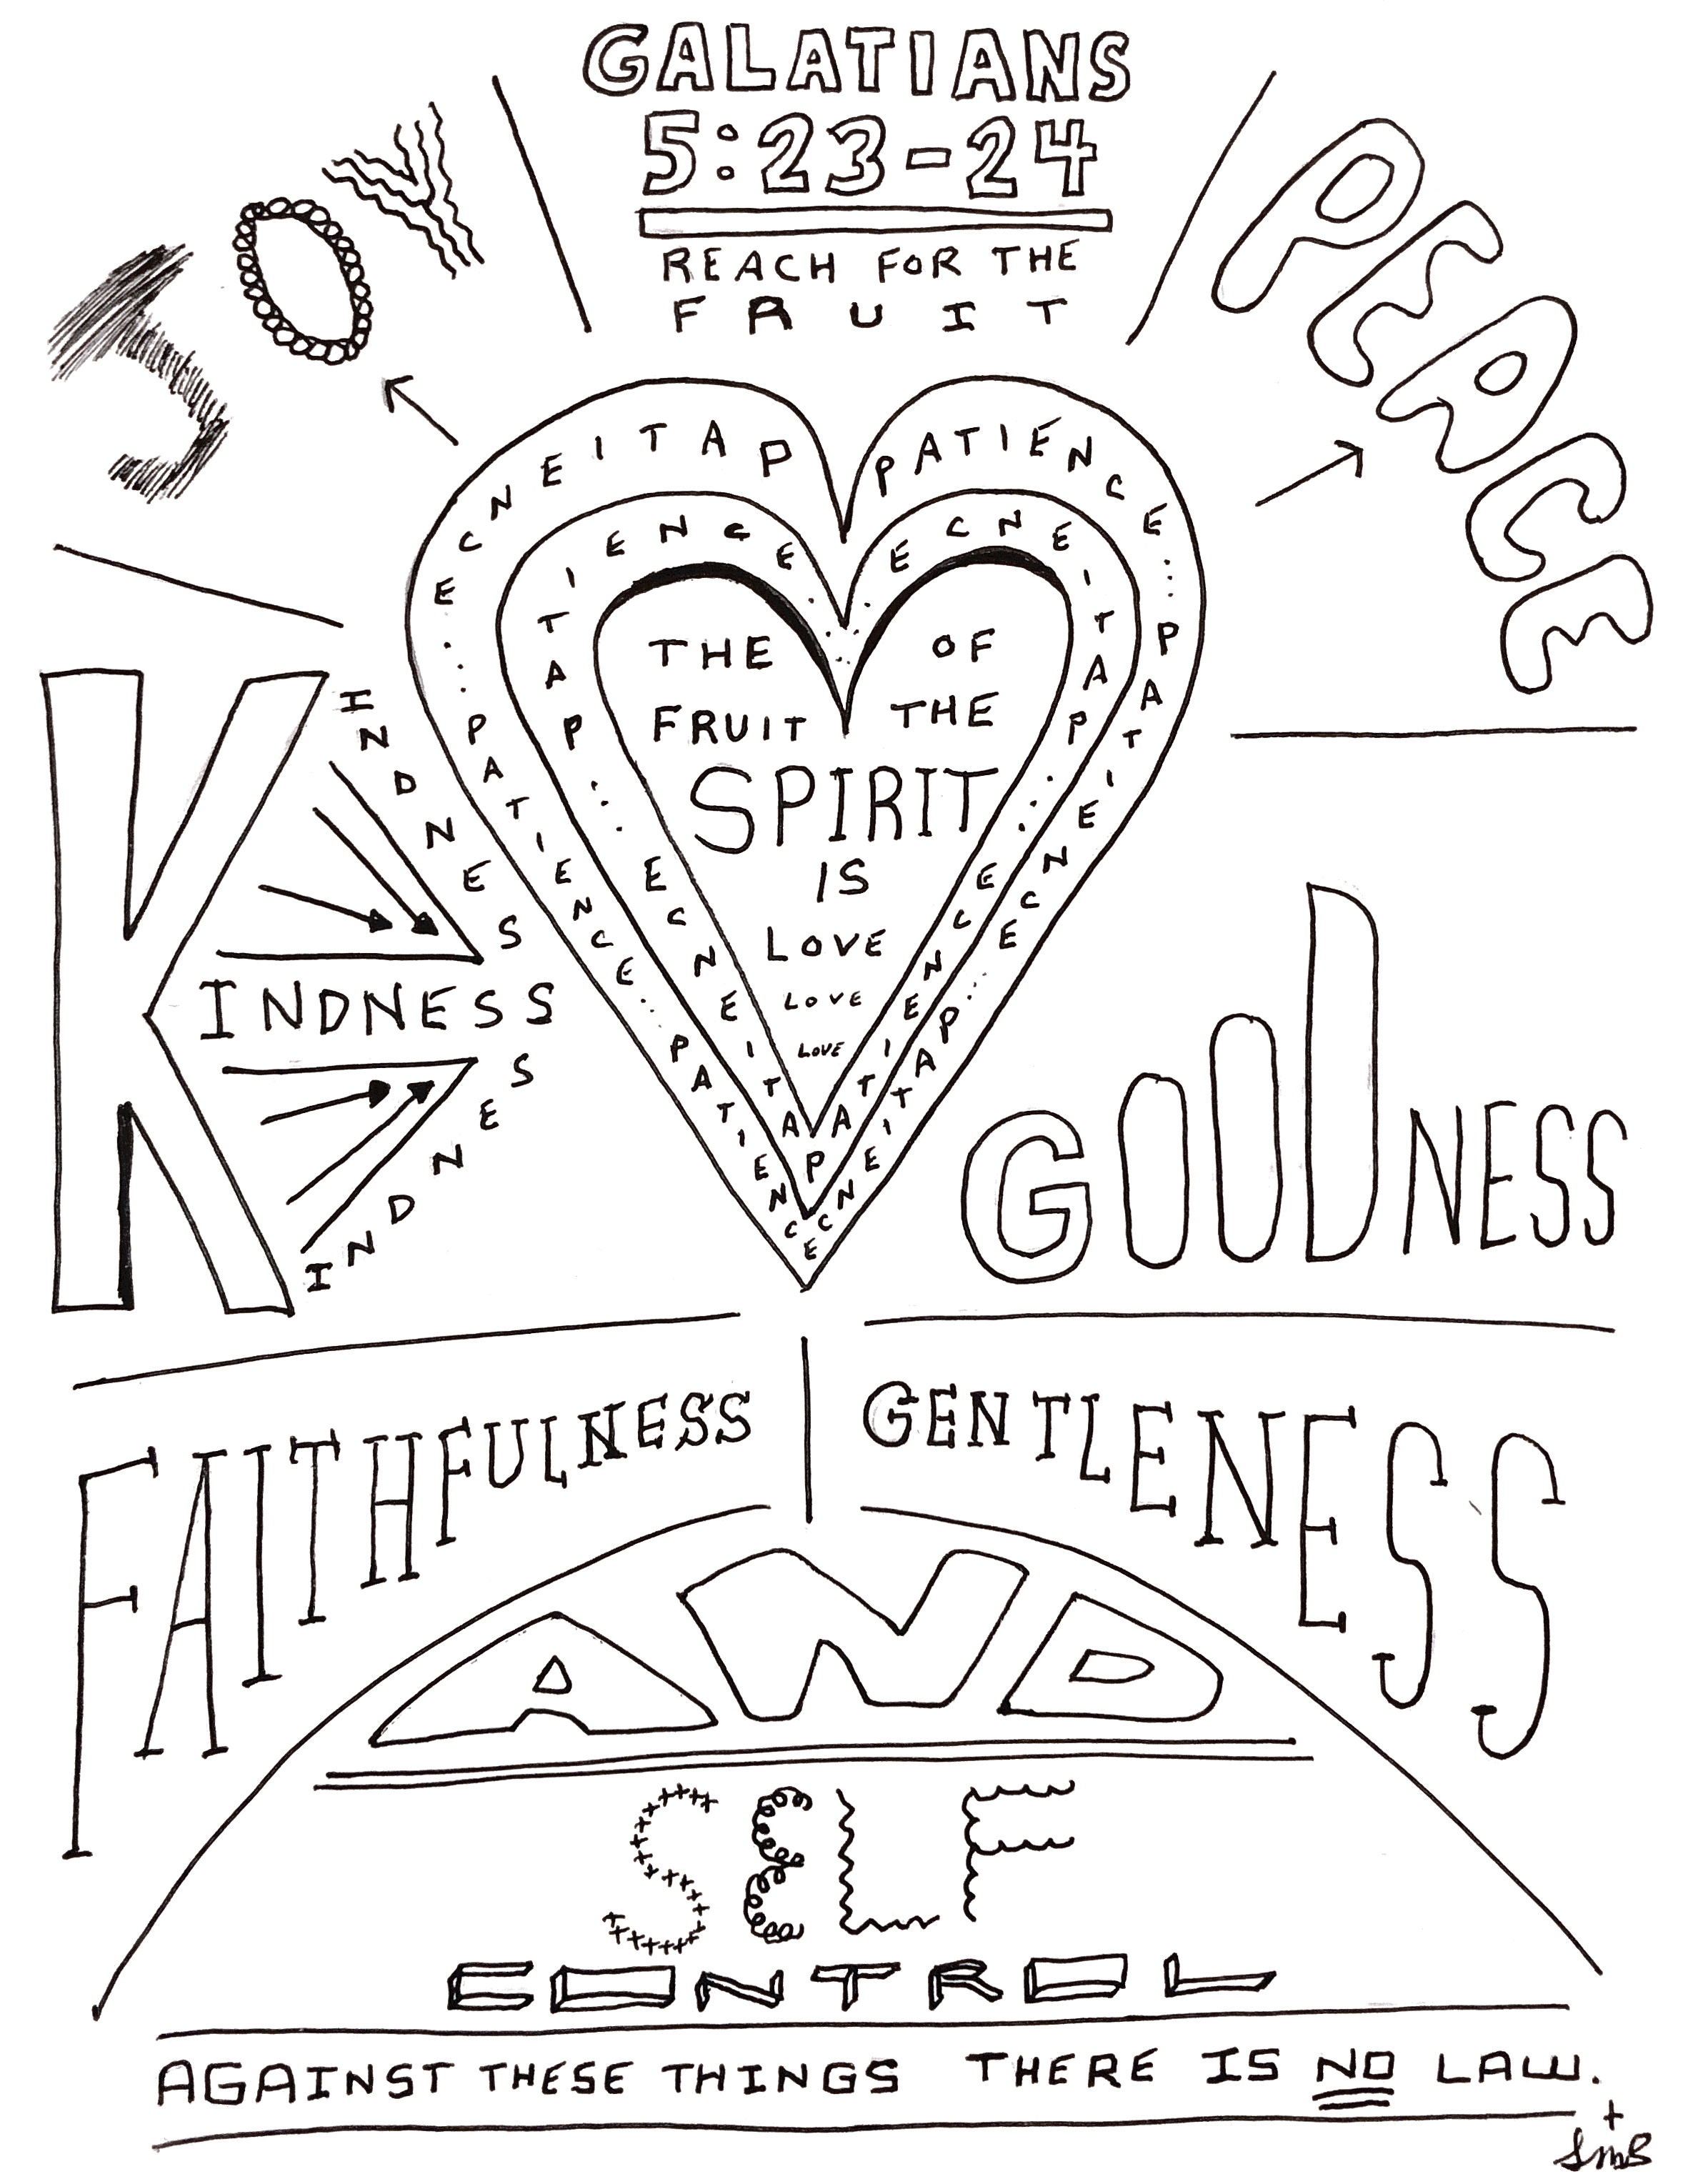 GALATIANS
5:23-24
REACH FOR THE
FRUIT
JOY
PEACE
ECNEITAP PATIENCE
E...PATIENCE...PATIENCE
PATIENCE...PATIENCE
PATIENCE...ECNEITAP
ECNEITAP...ECNEITAP
THE OF
FRUIT THE
SPIRIT
IS
LOVE
LOVE
LOVE
KINDNESS
INDNESS
INDNESS
GOODNESS
FAITHFULNESS
GENTLENESS
AND
SELF
CONTROL
AGAINST THESE THINGS THERE IS NO LAW.
SMB